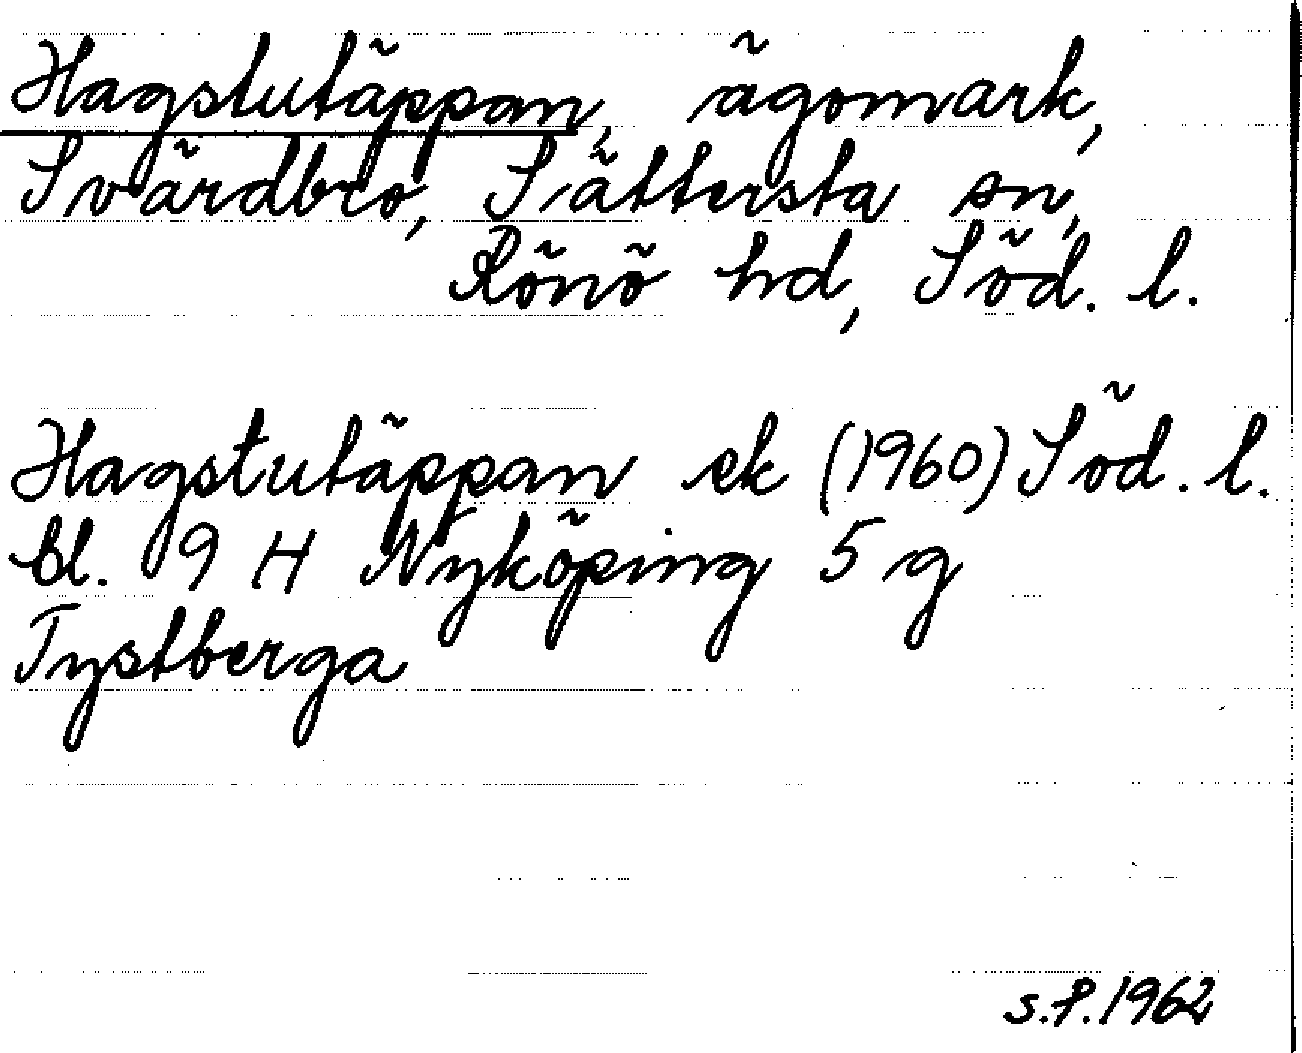 Hagstutäppan, ägomark,
Svärdbro, Sättersta sn,
Rönö hd, Söd. l.
Hagstutäppan ek (1960) Söd. l.
bl. 9 H Nyköping 5 g
Tystberga
S.P. 1962